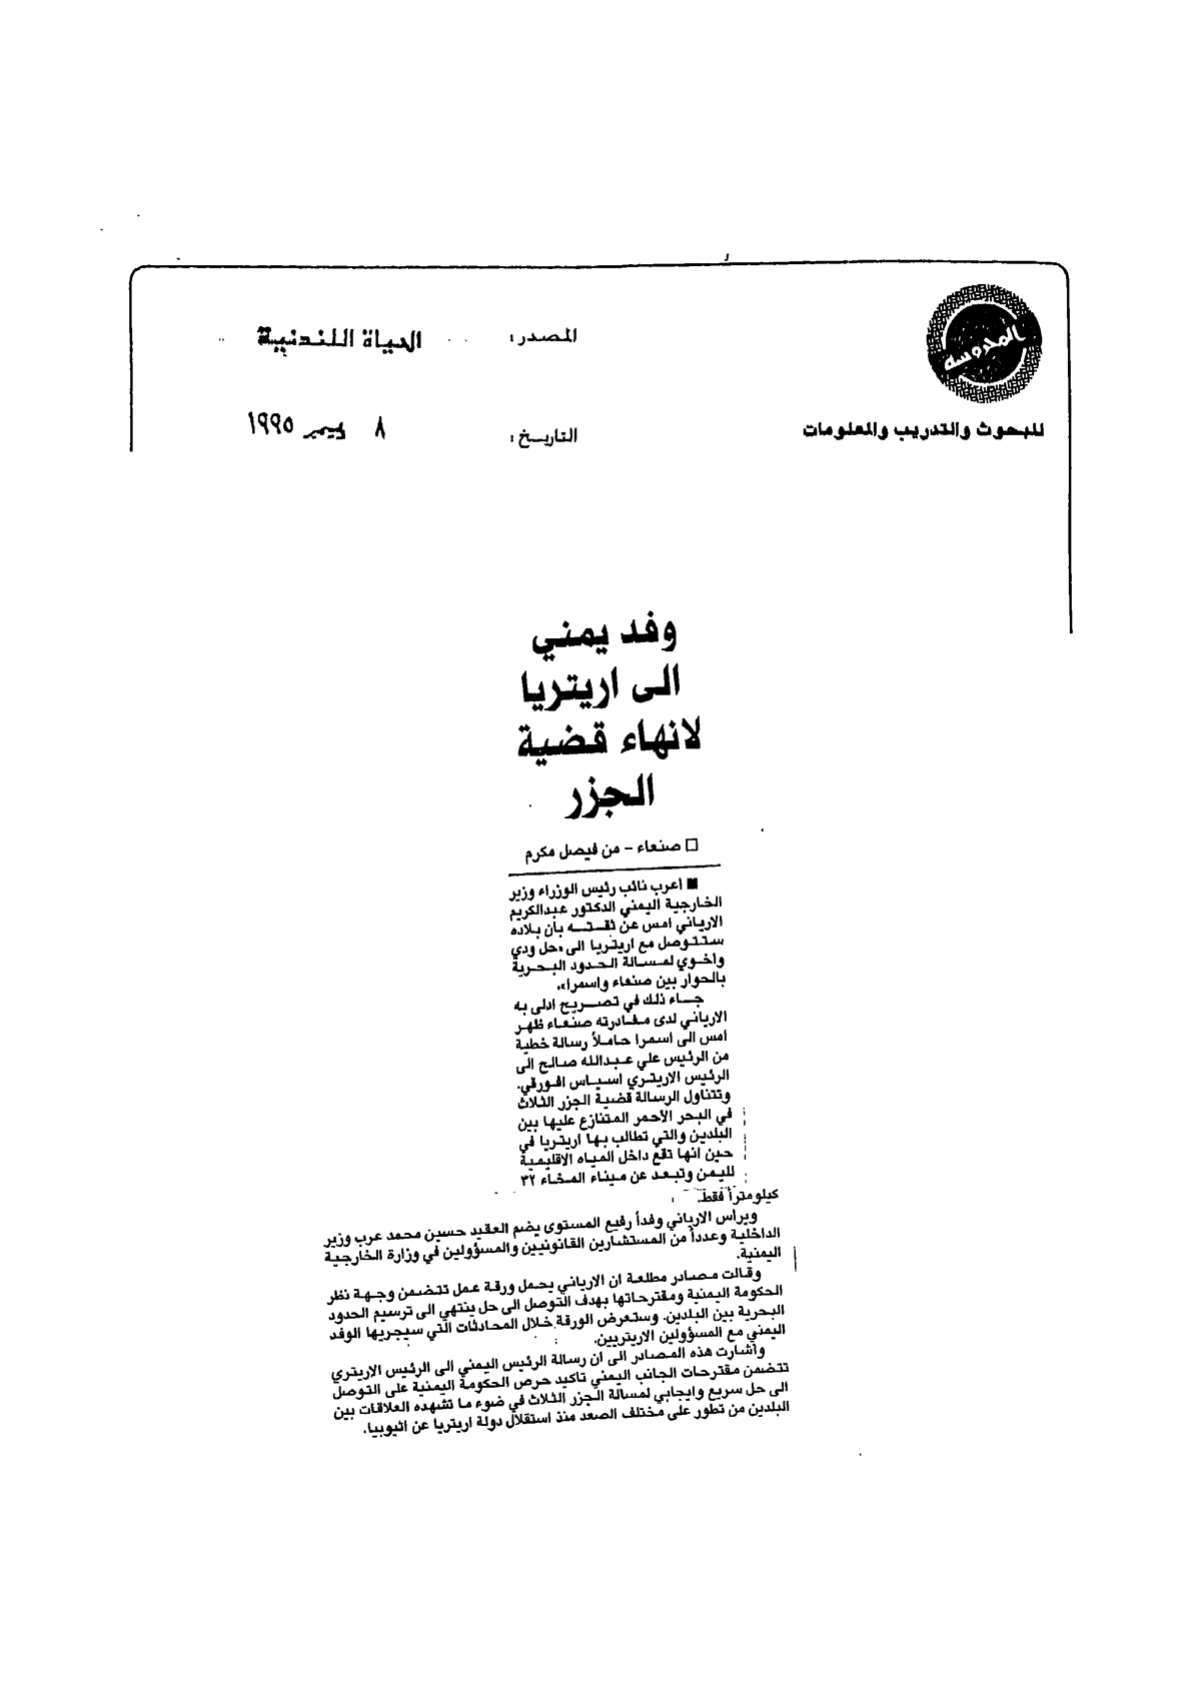 المحروسة
للبحوث والتدريب والمعلومات
المصدر: الحياة اللندنية
التاريخ: ٨ ١٩٩٥
وفد يمني
الى اريتريا
لانهاء قضية
الجزر
□ صنعاء - من فيصل مكرم
■ اعرب نائب رئيس الوزراء وزير
الخارجية اليمني الدكتور عبدالكريم
الارياني امس عن ثقته بأن بلاده
ستتوصل مع اريتريا الى «حل ودي
واخوي لمسالة الحدود البحرية
بالحوار بين صنعاء واسمرا».
جاء ذلك في تصريح ادلى به
الارياني لدى مغادرته صنعاء ظهر
امس الى اسمرا حاملاً رسالة خطية
من الرئيس علي عبدالله صالح الى
الرئيس الاريتري اسياس افورقي.
وتتناول الرسالة قضية الجزر الثلاث
في البحر الأحمر المتنازع عليها بين
البلدين والتي تطالب بها اريتريا في
حين انها تقع داخل المياه الإقليمية
لليمن وتبعد عن ميناء المخاء ٣٢
كيلومتراً فقط.
ويراس الارياني وفداً رفيع المستوى يضم العقيد حسين محمد عرب وزير
الداخلية وعدداً من المستشارين القانونيين والمسؤولين في وزارة الخارجية
اليمنية.
وقالت مصادر مطلعة ان الارياني يحمل ورقة عمل تتضمن وجهة نظر
الحكومة اليمنية ومقترحاتها بهدف التوصل الى حل ينتهي الى ترسيم الحدود
البحرية بين البلدين. وستعرض الورقة خلال المحادثات التي سيجريها الوفد
اليمني مع المسؤولين الاريتريين.
واشارت هذه المصادر الى ان رسالة الرئيس اليمني الى الرئيس الاريتري
تتضمن مقترحات الجانب اليمني تاكيد حرص الحكومة اليمنية على التوصل
الى حل سريع وايجابي لمسالة الجزر الثلاث في ضوء ما تشهده العلاقات بين
البلدين من تطور على مختلف الصعد منذ استقلال دولة اريتريا عن اثيوبيا.